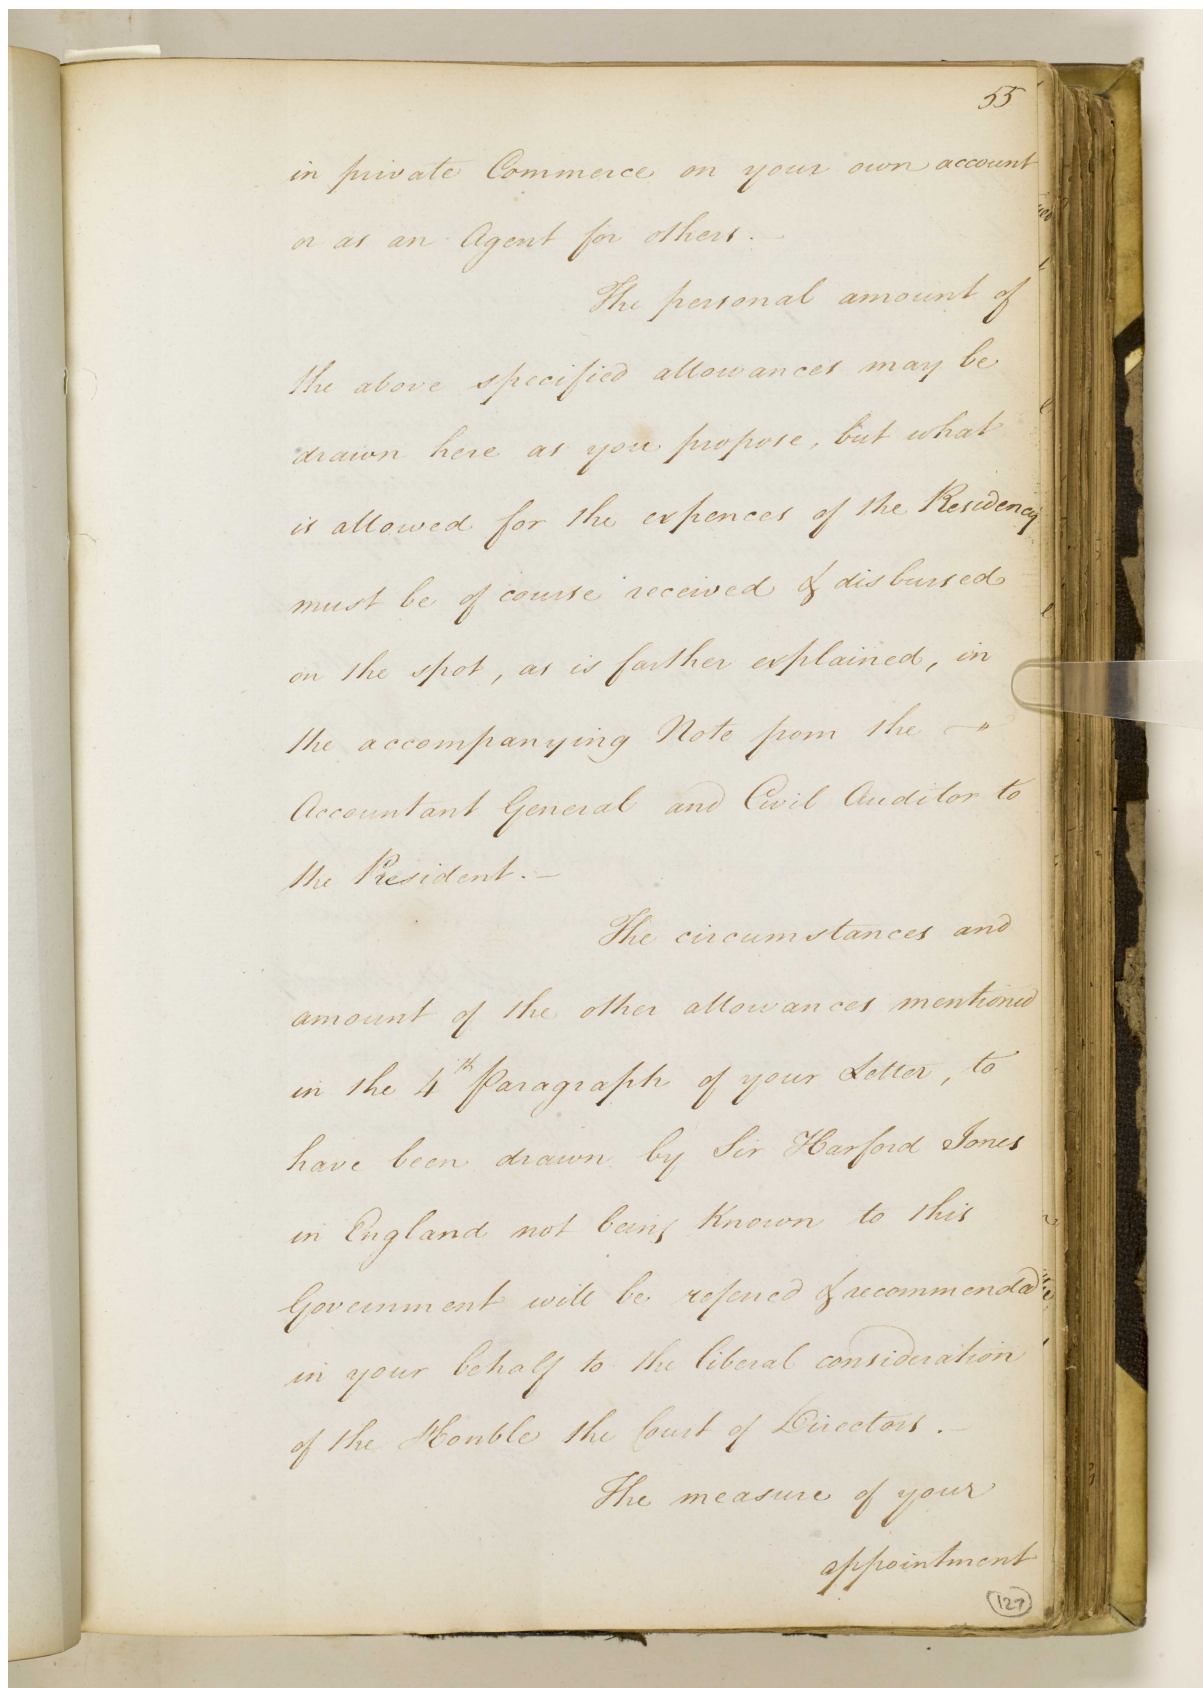 55
in private Commerce on your own account
or as an Agent for others. —
The personal amount of
the above specified allowances may be
drawn here as you propose, but what
is allowed for the expences of the Residency
must be of course received & disbursed
on the spot, as is farther explained, in
the accompanying Note from the — "
Accountant General and Civil Auditor to
the President. —
The circumstances and
amount of the other allowances mentioned
in the 4th Paragraph of your Letter, to
have been drawn by Sir Harford Jones
in England not being Known to this
Government will be refered & recommended
in your behalf to the liberal consideration
of the Honble the Court of Directors. —
The measure of your
appointment
127